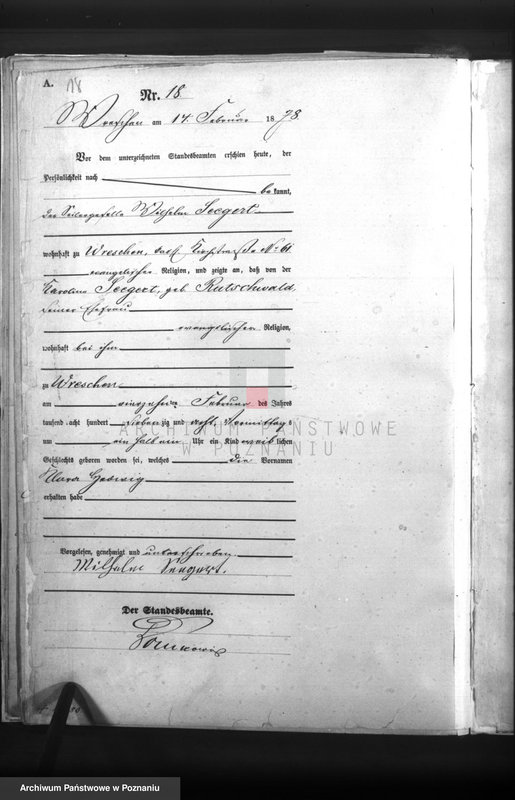 A.
18
Nr. 18
Wreschen am 14. Februar 1878
Vor dem unterzeichneten Standesbeamten erschien heute, der
Persönlichkeit nach
bekannt,
der Seilergeselle Wilhelm Seegert
wohnhaft zu Wreschen, No 61
evangelischer Religion, und zeigte an, daß von der
Karoline Seegert, geb. Rutschwald,
seiner Ehefrau
evangelischer Religion,
wohnhaft bei ihm
zu Wreschen
am vierzehnten Februar des Jahres
tausend acht hundert siebenzig und acht, Vormittags
um ein halb ein Uhr ein Kind weiblichen
Geschlechts geboren worden sei, welches die Vornamen
Clara Hedwig
erhalten habe
Vorgelesen, genehmigt und unterschrieben
Wilhelm Seegert.
Der Standesbeamte.
ARCHIWUM PAŃSTWOWE
W POZNANIU
Archiwum Państwowe w Poznaniu